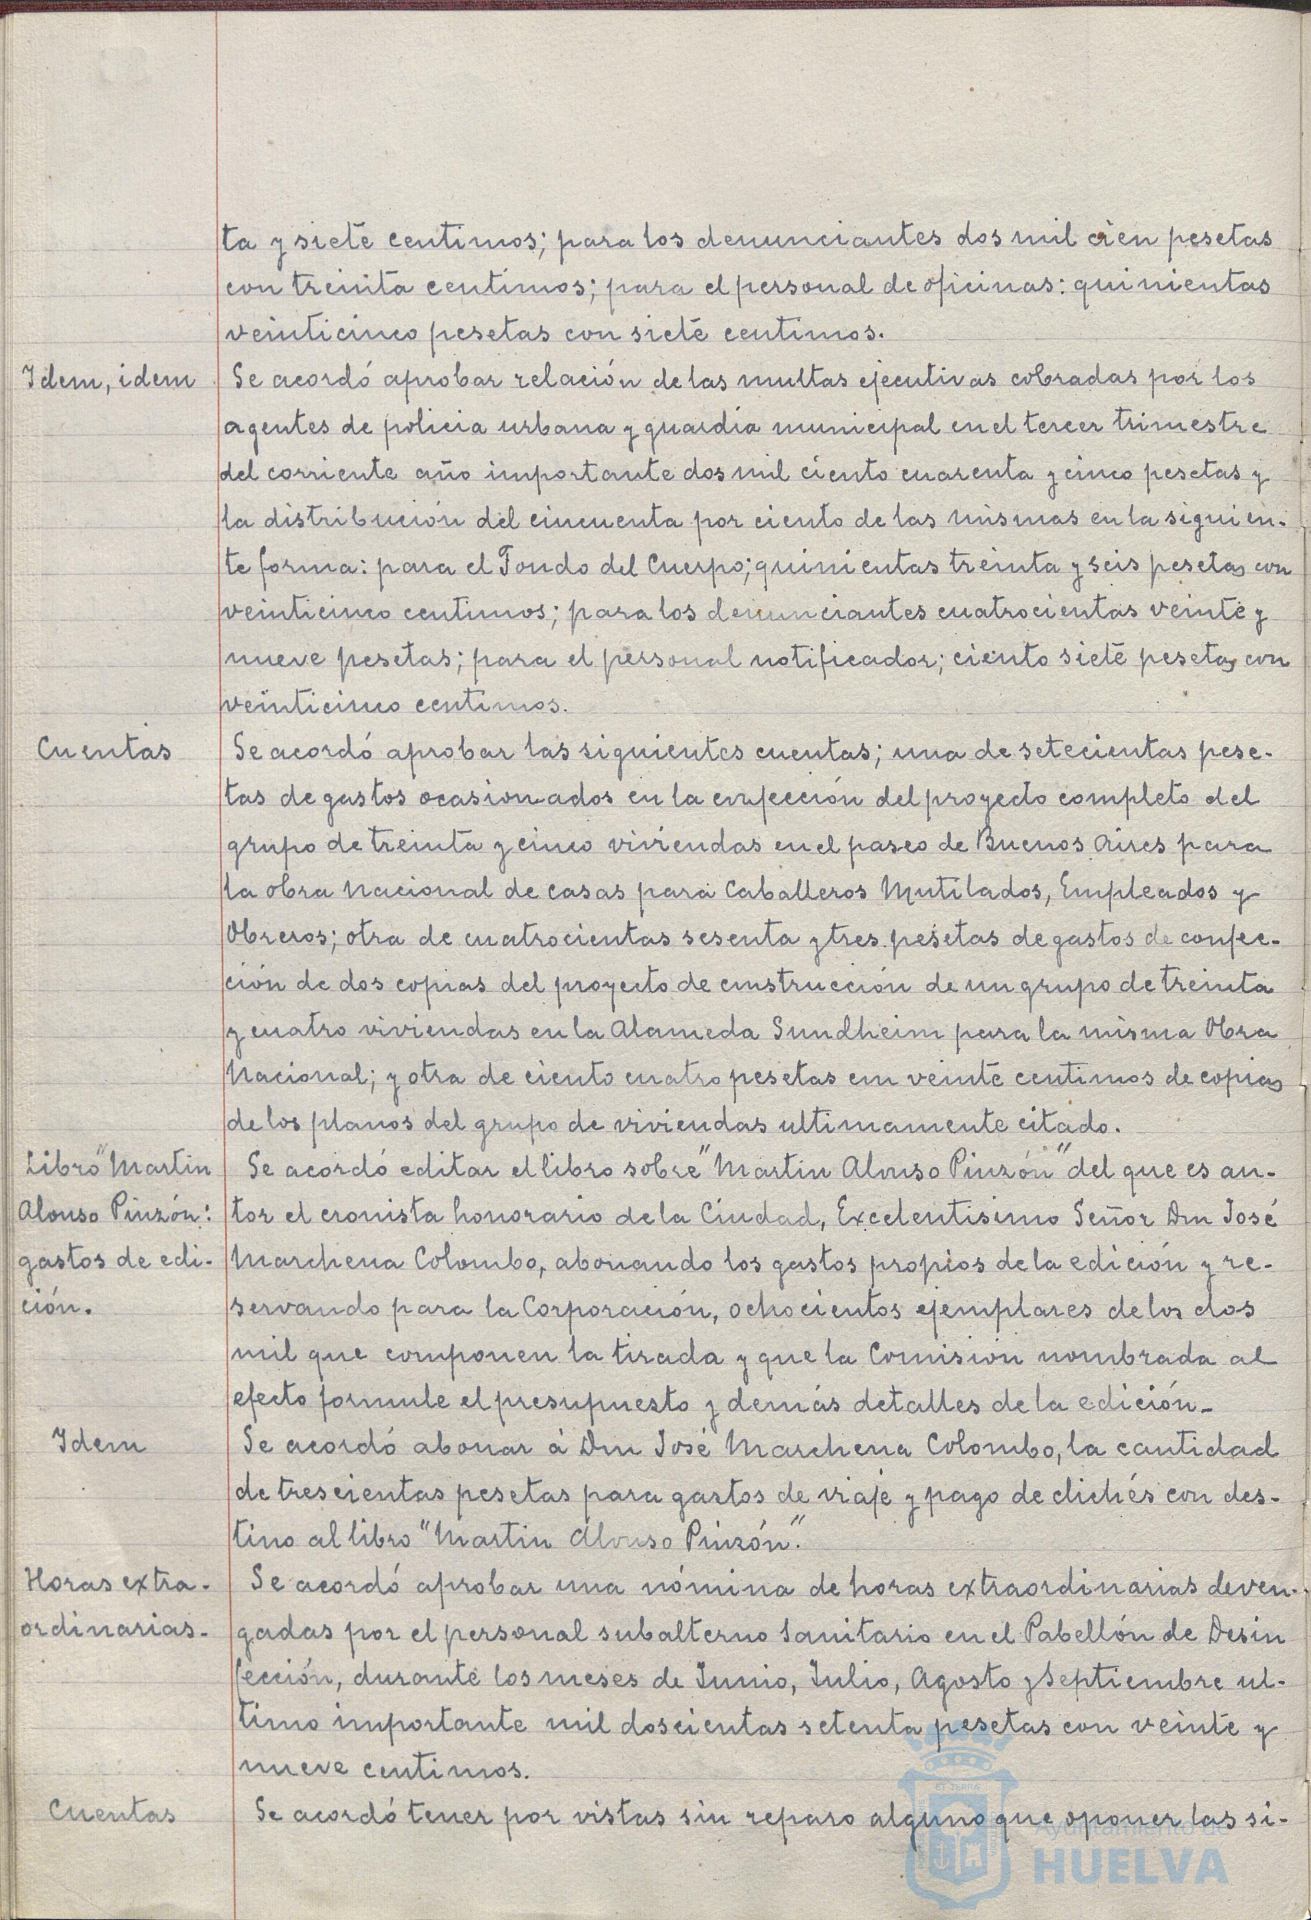 ta y siete centimos; para los denunciantes dos mil cien pesetas
con treinta centimos; para el personal de oficinas: quinientas
veinticinco pesetas con siete centimos.
Idem, idem
Se acordó aprobar relación de las multas ejecutivas cobradas por los
agentes de policia urbana y guardia municipal en el tercer trimestre
del corriente año importante dos mil ciento cuarenta y cinco pesetas y
la distribución del cincuenta por ciento de las mismas en la siguien-
te forma: para el Fondo del Cuerpo; quinientas treinta y seis pesetas con
veinticinco centimos; para los denunciantes cuatrocientas veinte y
nueve pesetas; para el personal notificador; ciento siete pesetas con
veinticinco centimos.
Cuentas
Se acordó aprobar las siguientes cuentas; una de setecientas pese-
tas de gastos ocasionados en la confección del proyecto completo del
grupo de treinta y cinco viviendas en el paseo de Buenos Aires para
la obra Nacional de casas para Caballeros Mutilados, Empleados y
Obreros; otra de cuatrocientas sesenta y tres pesetas de gastos de confec-
ción de dos copias del proyecto de construcción de un grupo de treinta
y cuatro viviendas en la Alameda Sundheim para la misma Obra
Nacional; y otra de ciento cuatro pesetas con veinte centimos de copias
de los planos del grupo de viviendas ultimamente citado.
Libro "Martin
Alonso Pinzón:
gastos de edi-
ción.
Se acordó editar el libro sobre "Martin Alonso Pinzón" del que es au-
tor el cronista honorario de la Ciudad, Excelentisimo Señor Don José
Marchena Colombo, abonando los gastos propios de la edición y re-
servando para la Corporación, ochocientos ejemplares de los dos
mil que componen la tirada y que la Comision nombrada al
efecto formule el presupuesto y demás detalles de la edición-
Idem
Se acordó abonar á Don José Marchena Colombo, la cantidad
de trescientas pesetas para gastos de viaje y pago de clichés con des-
tino al libro "Martin Alonso Pinzón".
Horas extra-
ordinarias-
Se acordó aprobar una nómina de horas extraordinarias deven-
gadas por el personal subalterno Sanitario en el Pabellón de Desin
fección, durante los meses de Junio, Julio, Agosto y Septiembre ul-
timo importante mil doscientas setenta pesetas con veinte y
nueve centimos.
Cuentas
Se acordó tener por vistas sin reparo alguno que oponer las si-
Ayuntamiento de
HUELVA